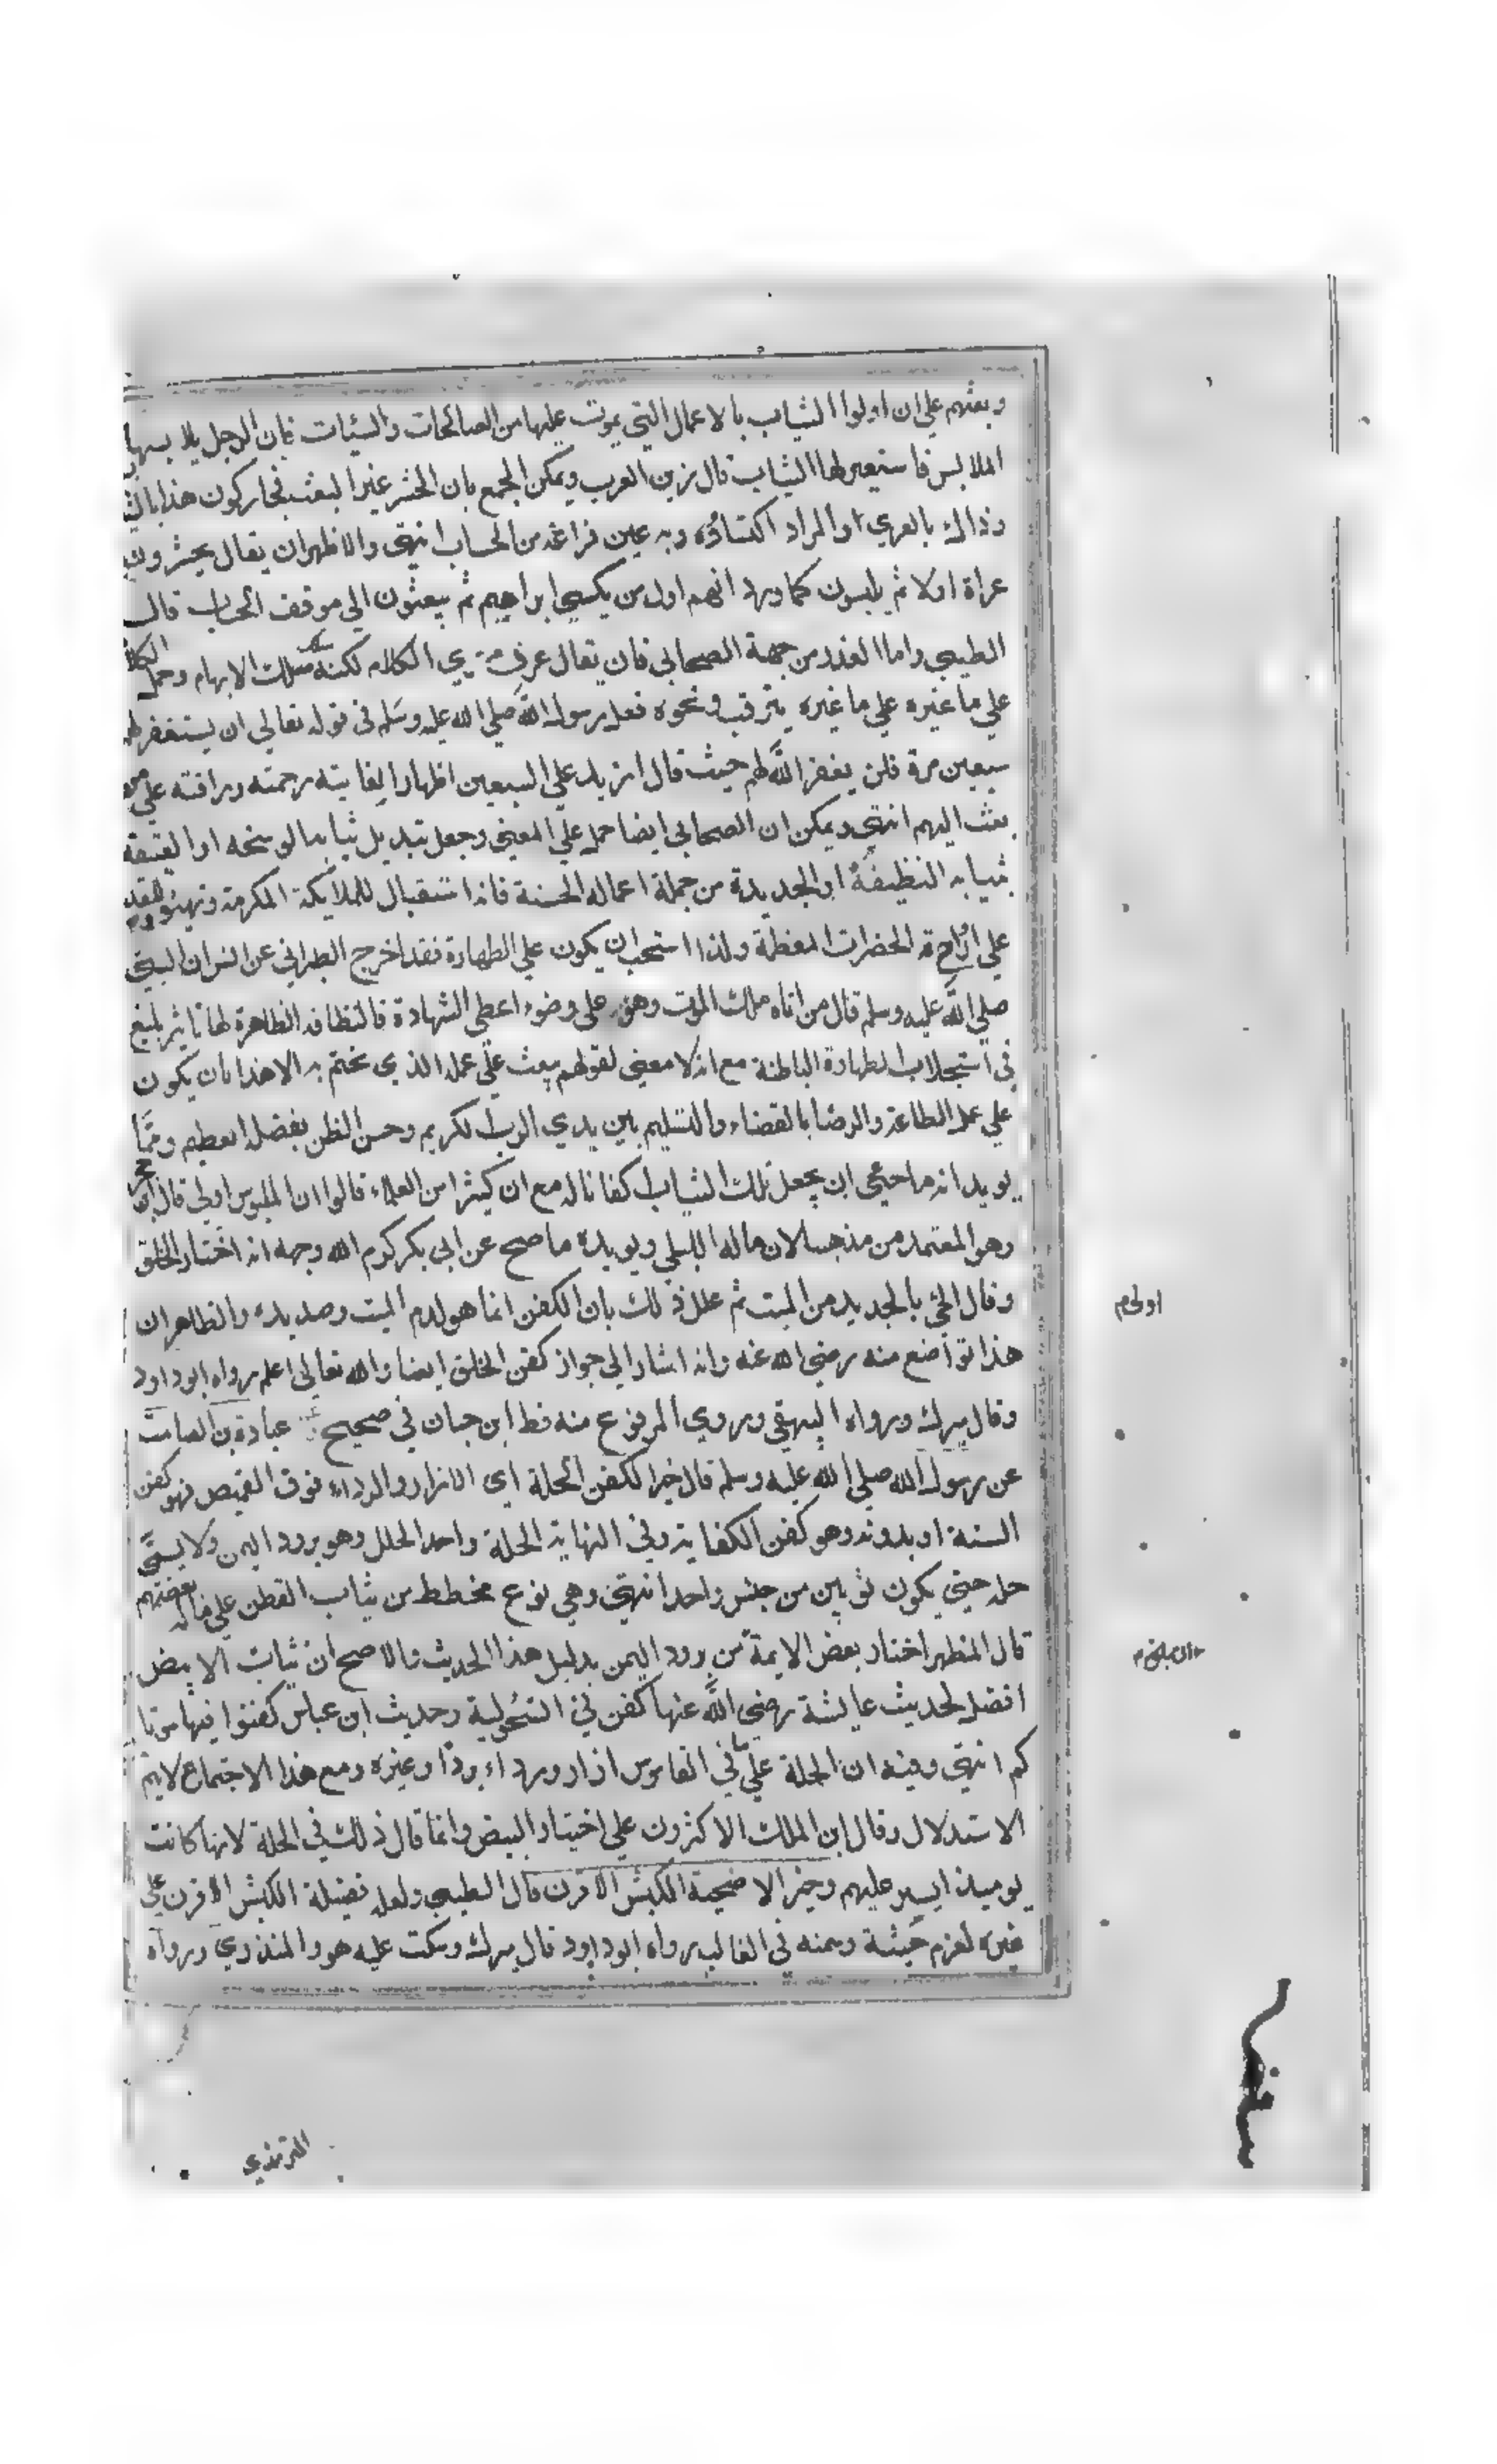 وبعثهم على ان اولوا الثياب بالاعمال التي يموت عليها من الصالحات والسيئات فان الرجل يلابسها
الملابس فاستعير لها الثياب قال زين العرب ويمكن الجمع بان الحشر غير البعث فجاز كون هذا بالثياب
وذاك بالعري او المراد اكتساؤه به عين فراغه من الحساب انتهى والاظهر ان يقال يحشرون
عراة اولا ثم يلبسون كما ورد انهم اول من يكسي ابراهيم ثم يبعثون الي موقف الحساب قال
الطيبي واما العذر من جهة الصحابي فان يقال عرف مغزي الكلام لكنه سلك مسلك الابهام وحمل الكلام
علي ما غيره علي ما غيره يترقب ونحوه فعل رسول الله صلي الله عليه وسلم في قوله تعالي ان يستغفر لهم
سبعين مرة فلن يغفر الله لهم حيث قال ازيد علي السبعين اظهارا لغايته رحمته ورافته علي من
بعث اليهم انتهي ويمكن ان الصحابي ايضا حمل علي المعني وجعل تبديل ثيابه الوسخه او العتيقة
بثيابه النظيفة او الجديدة من جملة اعماله الحسنة فانه استقبال للملايكة المكرمة وتهيئ للقدوم
علي ارواح الحضرات المعظمة ولذا استحب ان يكون علي الطهارة فقد اخرج الطبراني عن انس ان النبي
صلي الله عليه وسلم قال من اتاه ملك الموت وهو علي وضوء اعطي الشهادة فالنظافه الظاهرة لها تاثير بليغ
في استجلاب الطهارة الباطنة مع انه لا معني لقولهم يبعث علي عمله الذي يختم به الا هذا بان يكون
علي عمل الطاعة والرضا بالقضاء والتسليم بين يدي الرب الكريم وحسن الظن بفضله العظيم ومما
يويد انه ما احي ان يجعل تلك الثياب كفنا له مع ان كثيرا من العلماء قالوا ان الملبوس اولي قال ابن حجر
وهو المعتمد من مذهبنا لان ماله للبلي ويويده ما صح عن ابي بكر كرم الله وجهه انه اختار الخلق
وقال الحي بالجديد من الميت ثم علل ذلك بان الكفن انما هو لدم الميت وصديده والظاهر ان
هذا تواضع منه رضي الله عنه وانه اشار الي جواز كفن الخلق ايضا والله تعالي اعلم رواه ابو داود
وقال ميرك ورواه البيهقي وروي المرفوع منه فقط ابن حبان في صحيحه عن عبادة بن الصامت
عن رسول الله صلي الله عليه وسلم قال خير الكفن الحلة اي الازار والرداء فوق القميص فهو كفن
السنة او بدونه وهو كفن الكفاية وفي النهاية الحلة واحد الحلل وهو برود اليمن ولا يسمي
حله حتي يكون ثوبين من جنس واحد انتهي وهي نوع مخطط من ثياب القطن علي ما قاله بعضهم
قال المظهر اختار بعض الايمة من برود اليمن بدليل هذا الحديث والاصح ان ثياب الابيض
افضل لحديث عايشة رضي الله عنها كفن في السحولية وحديث ابن عباس كفنوا فيها موتا
كم انتهي وفيه ان الحلة علي ما في القاموس ازار ورداء بردا وغيره ومع هذا الاجتماع لا يتم
الاستدلال وقال ابن الملك الاكثرون علي اختيار البيض وانما قال ذلك في الحلة لانها كانت
يوميذ ايسر عليهم وخير الاضحية الكبش الاقرن قال الطيبي ولعله فضيلة الكبش الاقرن علي
غيره لعزم جثته وسمنه في الغالب رواه ابو داود قال ميرك وسكت عليه هو والمنذري ورواه
اولي م
الترمذي